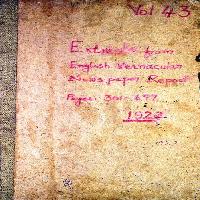 Vol 43
Extracts from
English Vernacular
News paper Report
Pages: 301-697
1922